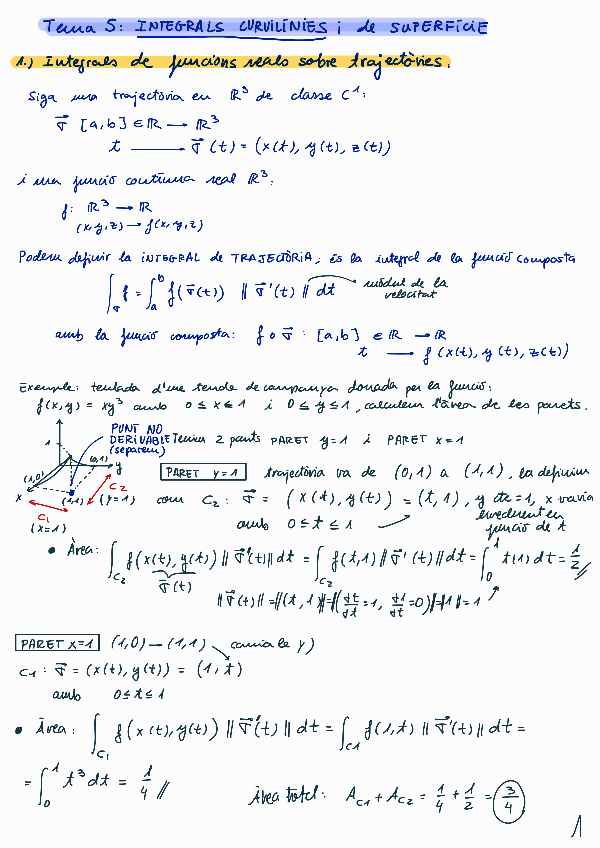 Tema 5: INTEGRALS CURVILÍNIES i de SUPERFÍCIE
1.) Integrals de funcions reals sobre trajectòries.
Siga una trajectòria en ℝ³ de classe C¹:
σ⃗ [a,b] ∈ ℝ → ℝ³
t → σ⃗(t) = (x(t), y(t), z(t))
i una funció contínua real ℝ³:
f: ℝ³ → ℝ
(x,y,z) → f(x,y,z)
Podem definir la INTEGRAL de TRAJECTÒRIA, és la integral de la funció composta
∫_σ f = ∫_a^b f(σ⃗(t)) ‖σ⃗'(t)‖ dt → mòdul de la velocitat
amb la funció composta: f∘σ⃗ : [a,b] ∈ ℝ → ℝ
t → f(x(t), y(t), z(t))
Exemple: teulada d'una tenda de campanya donada per la funció:
f(x,y) = xy³ amb 0 ≤ x ≤ 1 i 0 ≤ y ≤ 1, calculem l'àrea de les parets.
1
PUNT NO DERIVABLE (separem)
(1,0) (0,1) y
x (1,1) (y=1) C₂
C₁ (x=1)
Tenim 2 parts PARET y=1 i PARET x=1
PARET y=1 trajectòria va de (0,1) a (1,1), la definim
com C₂: σ⃗ = (x(t), y(t)) = (t,1), y cte=1, x varia
amb 0 ≤ t ≤ 1 en funció de t
• Àrea: ∫_C₂ f(x(t), y(t)) ‖σ⃗'(t)‖ dt = ∫_C₂ f(t,1) ‖σ⃗'(t)‖ dt = ∫_0^1 t(1) dt = 1/2 //
σ⃗(t)
‖σ⃗'(t)‖ = ‖(t,1)'‖ = ‖(dt/dt = 1, d1/dt = 0)‖ = ‖1‖ = 1
PARET x=1 (1,0) → (1,1) canvia le y)
C₁: σ⃗ = (x(t), y(t)) = (1,t)
amb 0 ≤ t ≤ 1
• Àrea: ∫_C₁ f(x(t), y(t)) ‖σ⃗'(t)‖ dt = ∫_C₁ f(1,t) ‖σ⃗'(t)‖ dt =
= ∫_0^1 t³ dt = 1/4 // Àrea total: A_C₁ + A_C₂ = 1/4 + 1/2 = 3/4
1